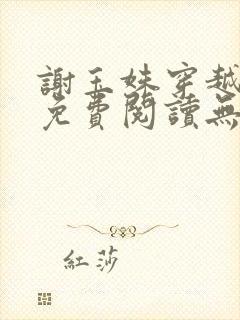 謝玉妹穿越
免費閱讀無
紅莎